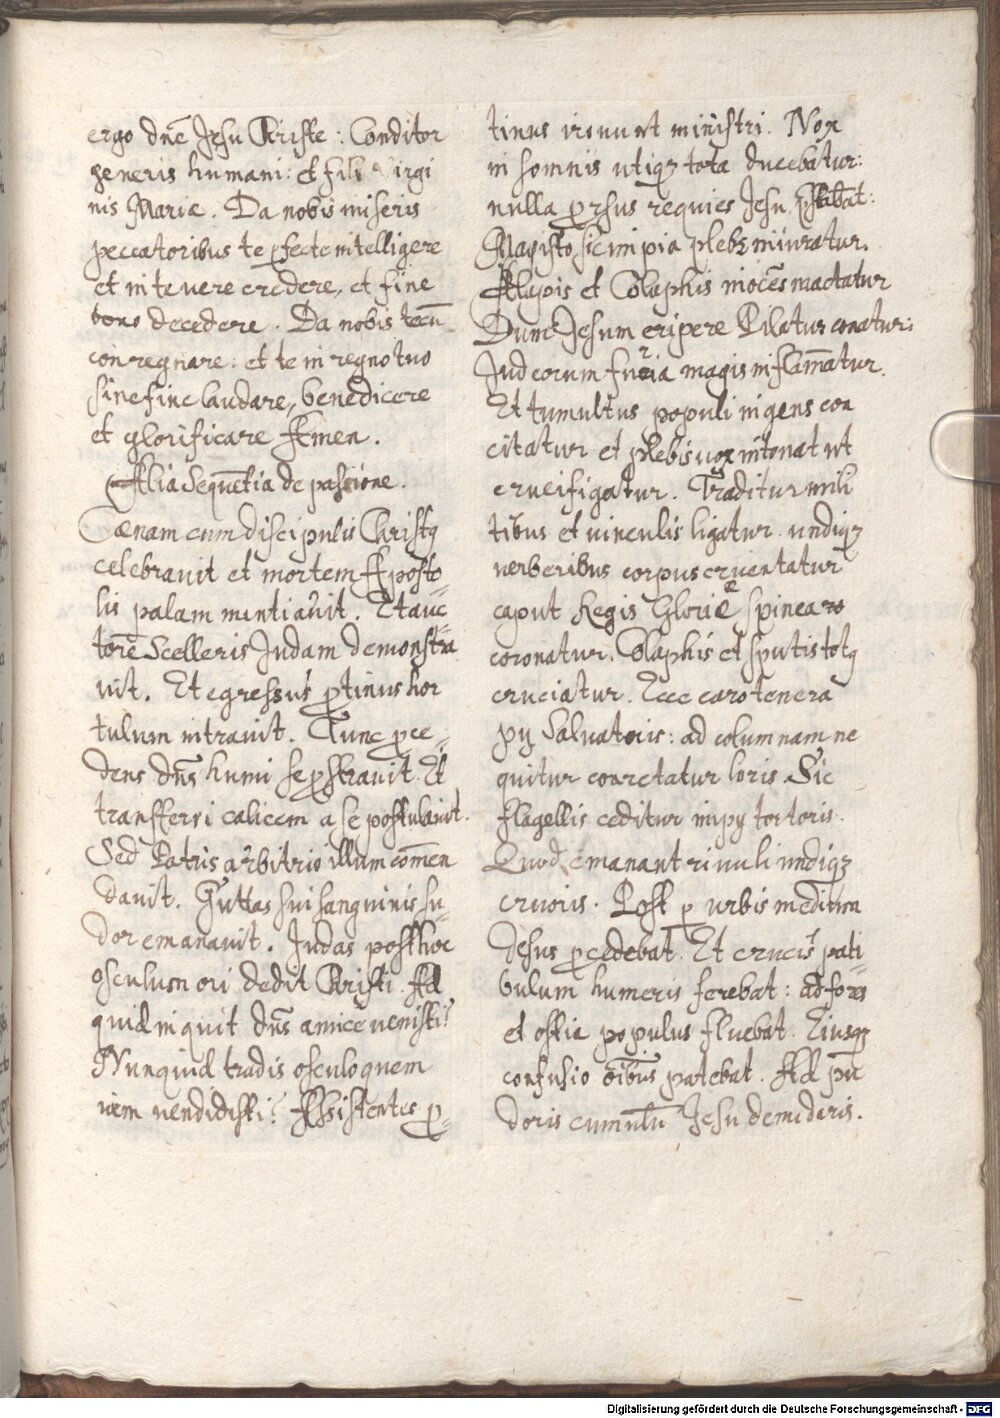 ergo dnē Jesu Christe : Conditor
generis humani: et fili Virgi
nis Mariæ. Da nobis miseris
peccatoribus te pfecte intelligere
et in te vere credere, et fine
bono decedere. Da nobis tecū
conregnare: et te in regno tuo
sine fine laudare, benedicere
et glorificare Amen.
Alia Sequētia de passione.
Cænam cum discipulis Christq
celebravit et mortem Aposto=
lis palam nuntiavit. Et auc=
torē Scelleris Judam demonstra
vit. Et egressus ptinus hor
tulum intravit. Tunc pce=
dens dns humi se pstravit. Et
transfferri calicem a se postulavit.
Sed Patris arbitrio illum comēn
davit. Guttas sui sanguinis su=
dor emanavit. Judas post hoc
osculum ori dedit Christi. Ad
quid inquit dns amice venisti?
Nunquid tradis osculo quem
iem vendidisti? Assistentes p=
tinus irruunt ministri. Nox
in somnis utiqz tota ducebatur:
nulla prsus requies Jesu pstabat:
Magisto sic impia plebs minratur.
Alapis et Colaphis inocēs mactatur
Dum Jesum eripere Pilatus conatur:
Judeorum furia magis inflam̄atur.
Et tumultus populi ingens con
citatur et plebis vox intonat ut
crucifigatur. Traditur mili
tibus et vinculis ligatur undiqz
verberibus corpus cruentatur
caput Regis Gloriæ spinea
coronatur. Colaphis et sputis totq
cruciatur. Ecce caro tenera
pij Salvatoris: ad columnam ne
quitur conretatur loris. Sic
flagellis ceditur impij tortoris.
Quod emanant rivuli undiqz
cruoris. Post p urbis meditūn
Jesus pcedebat. Et crucis pati=
bulum humeris ferebat: ad fores
et ostia populus fluebat. Eiusqz
confusio oībus patebat. Ad pu
doris cumulū Jesu demideris.
Digitalisierung gefördert durch die Deutsche Forschungsgemeinschaft - DFG